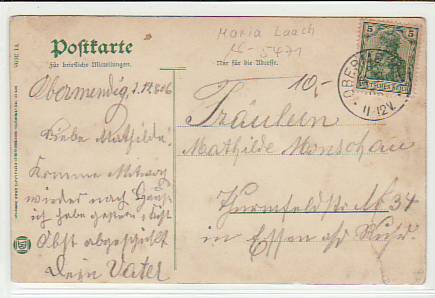 Maria Laach
16-5471
Postkarte
für briefliche Mitteilungen.
Nur für die Adresse.
5 5
Deutsches Reich
OBERME
11-12V.
10,-
Obermendig, 3.12.06
Liebe Mathilde!
Komme Mittwoch
wieder nach Hause
ich habe gestern 1 Kist
Obst abgeschickt
Dein Vater
Fräulein
Mathilde Monschau
Thurmfeldstr. No 34
in Essen a/d Ruhr.